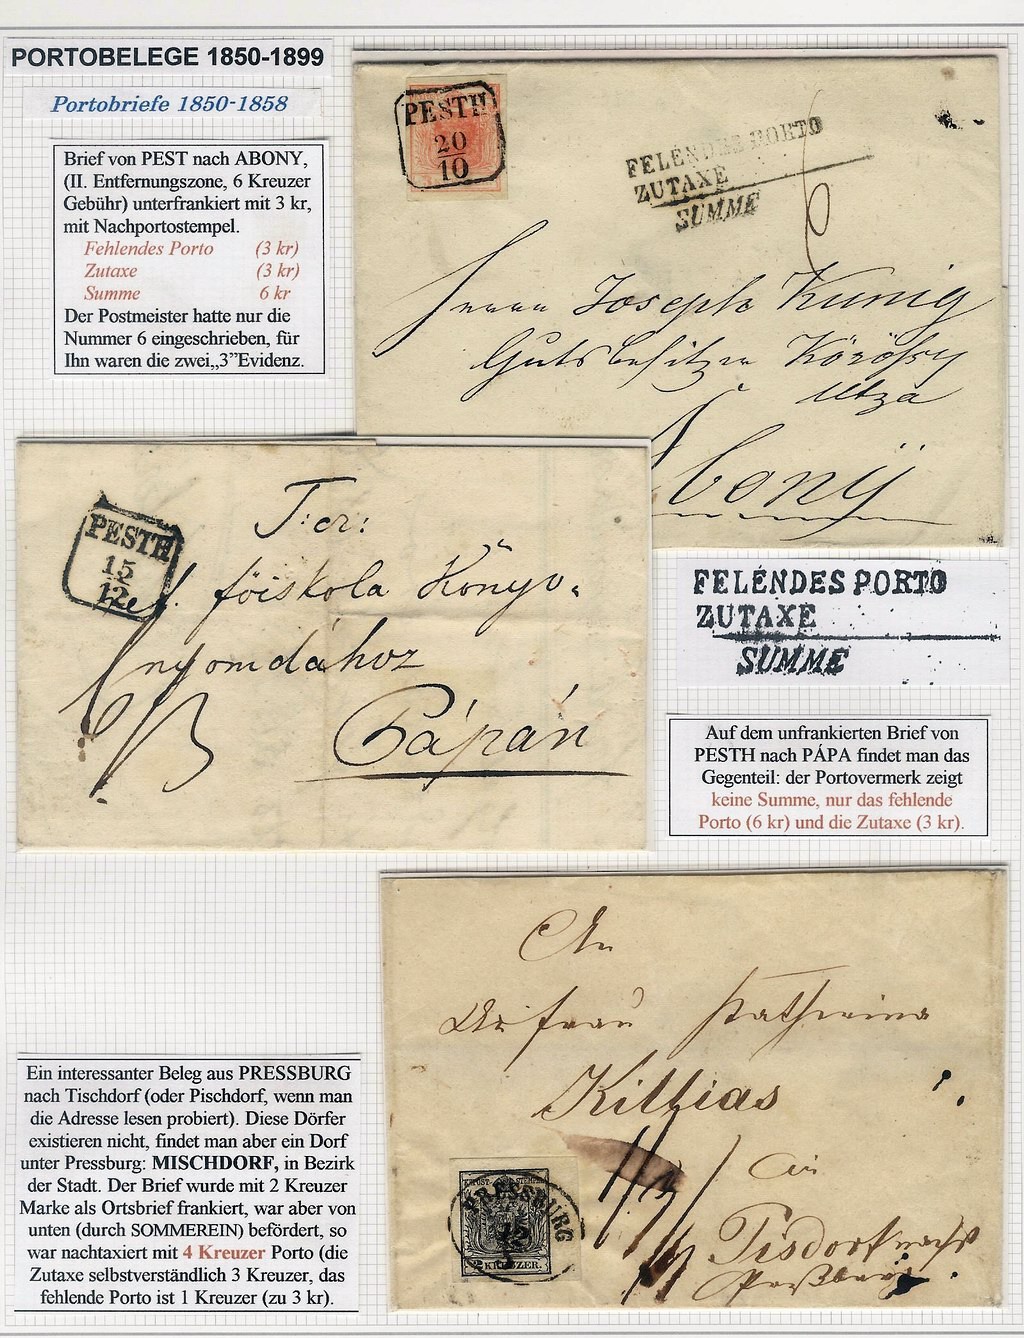 PORTOBELEGE 1850-1899
Portobriefe 1850-1858
Brief von PEST nach ABONY,
(II. Entfernungszone, 6 Kreuzer
Gebühr) unterfrankiert mit 3 kr,
mit Nachportostempel.
Fehlendes Porto (3 kr)
Zutaxe (3 kr)
Summe 6 kr
Der Postmeister hatte nur die
Nummer 6 eingeschrieben, für
Ihn waren die zwei„3”Evidenz.
PESTH
20
10
FELÉNDES PORTO
ZUTAXE
SUMME
6
Herrn Joseph Kunig
Gutsbesitzer Körösy
Utza
Abony
PESTH
15
12
T: cz:
főiskola Könyv-
nyomdához
6/3
Pápán
FELÉNDES PORTO
ZUTAXE
SUMME
Auf dem unfrankierten Brief von
PESTH nach PÁPA findet man das
Gegenteil: der Portovermerk zeigt
keine Summe, nur das fehlende
Porto (6 kr) und die Zutaxe (3 kr).
An
die Frau Katharina
Killias
in
Tisdorf nächst
Preßburg
PRESSBURG
2 KREUZER.
Ein interessanter Beleg aus PRESSBURG
nach Tischdorf (oder Pischdorf, wenn man
die Adresse lesen probiert). Diese Dörfer
existieren nicht, findet man aber ein Dorf
unter Pressburg: MISCHDORF, in Bezirk
der Stadt. Der Brief wurde mit 2 Kreuzer
Marke als Ortsbrief frankiert, war aber von
unten (durch SOMMEREIN) befördert, so
war nachtaxiert mit 4 Kreuzer Porto (die
Zutaxe selbstverständlich 3 Kreuzer, das
fehlende Porto ist 1 Kreuzer (zu 3 kr).